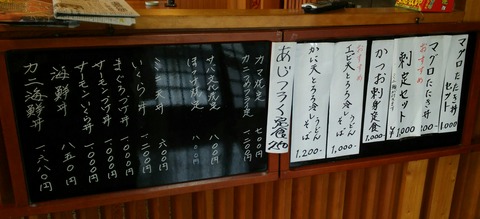 マグロたたき丼
セット 1,000
おすすめ
マグロたたき丼
刺定セット
¥1,000
かつお刺身定食
1,000-
おすすめ
エビ天とろろ冷し
うどん
そば
1,000-
かに天とろろ冷し
うどん
そば
1,200-
あじフライ定食
カマ焼定 七〇〇
カニコロッケ定
サバ文化定
ミニ天丼 六〇〇
いくら丼 一二〇〇
まぐろづけ丼 一〇〇〇
サーモンづけ丼 一〇〇〇
サーモンいくら丼 一〇〇〇
海鮮丼 八五〇
カニ海鮮丼 一六八〇円